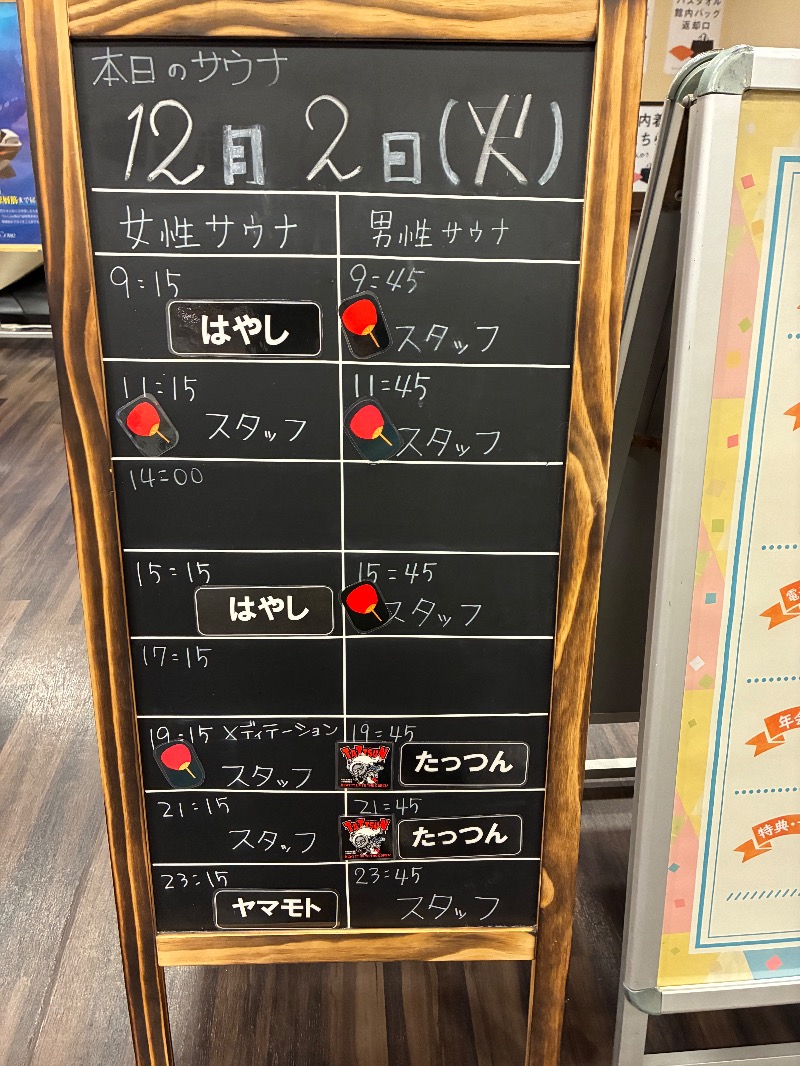 本日のサウナ
12月2日(火)
女性サウナ 男性サウナ
9:15 9:45
はやし スタッフ
11:15 11:45
スタッフ スタッフ
14:00
15:15 15:45
はやし スタッフ
17:15
19:15 メディテーション 19:45
スタッフ たっつん
21:15 21:45
スタッフ たっつん
23:15 23:45
ヤマモト スタッフ
館内バッグ
返却口
特典・